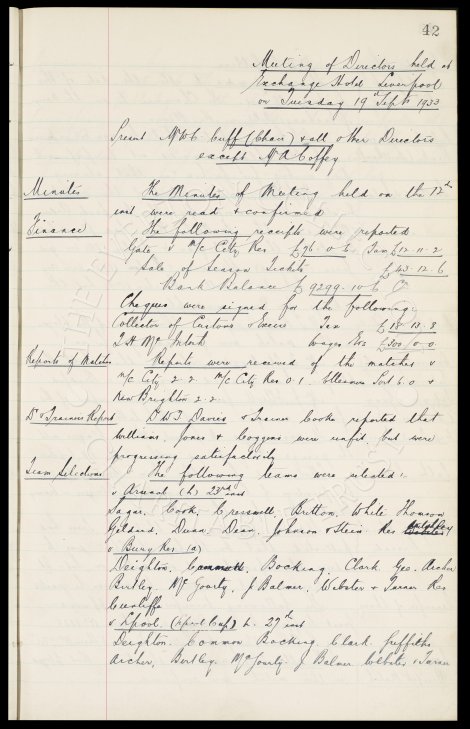 42
Meeting of Directors held at
Exchange Hotel Liverpool
on Tuesday 19th Sept 1933
Present Mr W C Cuff (Chair) & all other Directors
except Mr A Coffey
Minutes The Minutes of Meeting held on the 12th
inst were read & confirmed
Finance The following receipts were reported
Gate v M/c City Res £96. 0. 6 Tax £12. 11. 2
Sale of Season Tickets £43. 12. 6
Bank Balance £9299. 10. 6
Cheques were signed for the following:
Collector of Customs & Excise Tax
Wages Etc £500. 0. 0
Reports of Matches Reports were received of the matches v
M/c City 2. 2. M/c City Res 0. 1. Ellesmere Port 6. 0 &
New Brighton 2. 2.
Dr & Trainers Report Davies & Trainer Cooke reported that
Williams, Jones & Coggins were unfit, but were
progressing satisfactorily
Team Selections The following teams were selected:
v Arsenal (h) 23rd inst
Sagar. Cook, Cresswell, Britton. White Thomson
Geldard. Dunn. Dean. Johnson & Stein Res
v Bury Res (a)
Deighton. Common. Bocking. Clark Geo. Archer
Bentley. McGourty. J Balmer. Webster & Turner Res
Cunliffe
v L'pool. (L'pool Cup) h. 27th inst
Deighton. Common Bocking Clark Griffiths
Archer, Bentley. McGourty J Balmer Webster & Turner